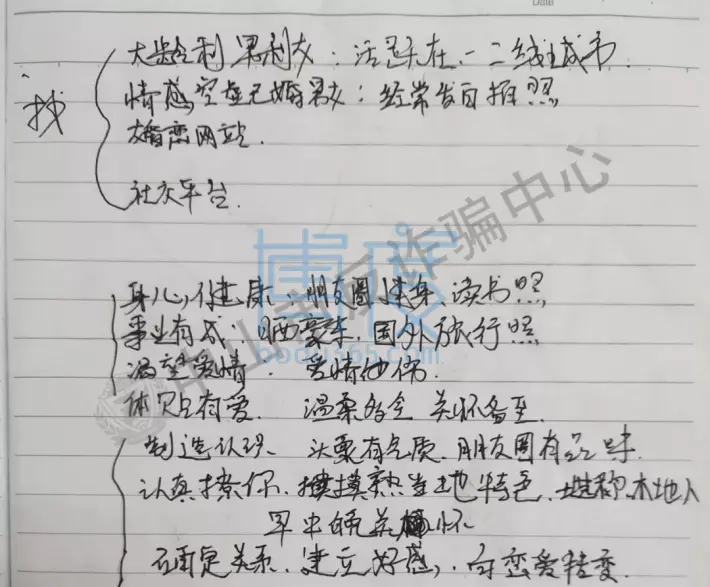 大龄剩男剩女：活跃在一二线城市.
找
情感空虚已婚男女：经常发自拍照
婚恋网站.
社交平台.
中山市反诈骗中心
博度
bodu365.com
身心健康：朋友圈健身、读书照
事业有成：晒豪车，国外旅行照
渴望爱情.
体贴有爱. 温柔多金 关怀备至.
制造认识、头像有气质.朋友圈有品味.
认真撩你.摸熟当地特色.谎称本地人
早中晚关怀
确定关系、建立好感,向恋爱转变.